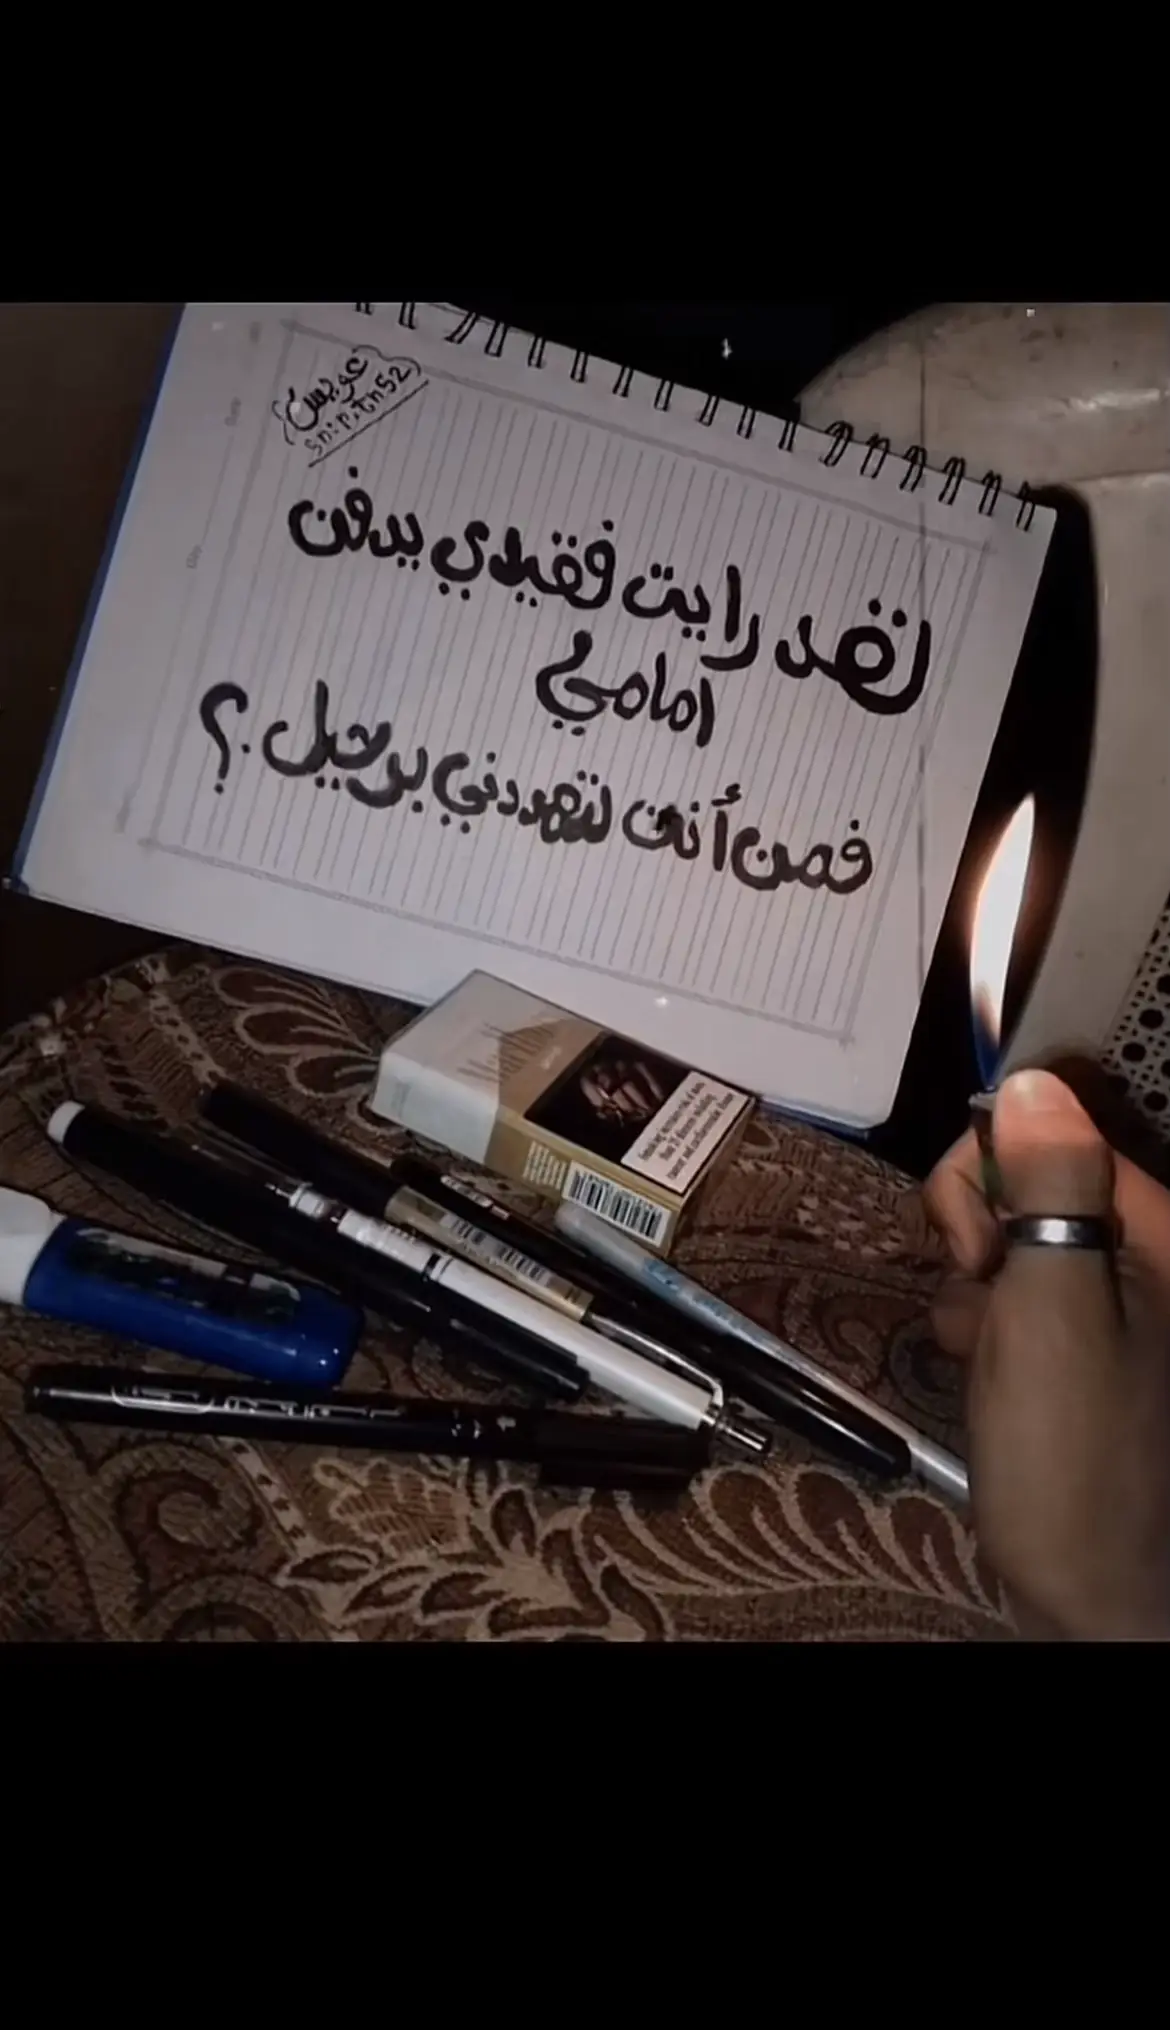 عويس
snipitns2
لقد رايت فقيدي يدفن
امامي
فمن أنت لتهددني برحيل ؟